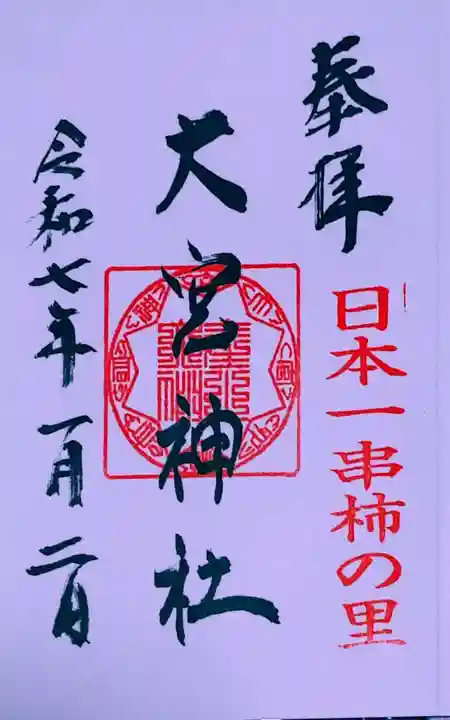 奉拝
日本一串柿の里
大宮神社
令和七年一月二日